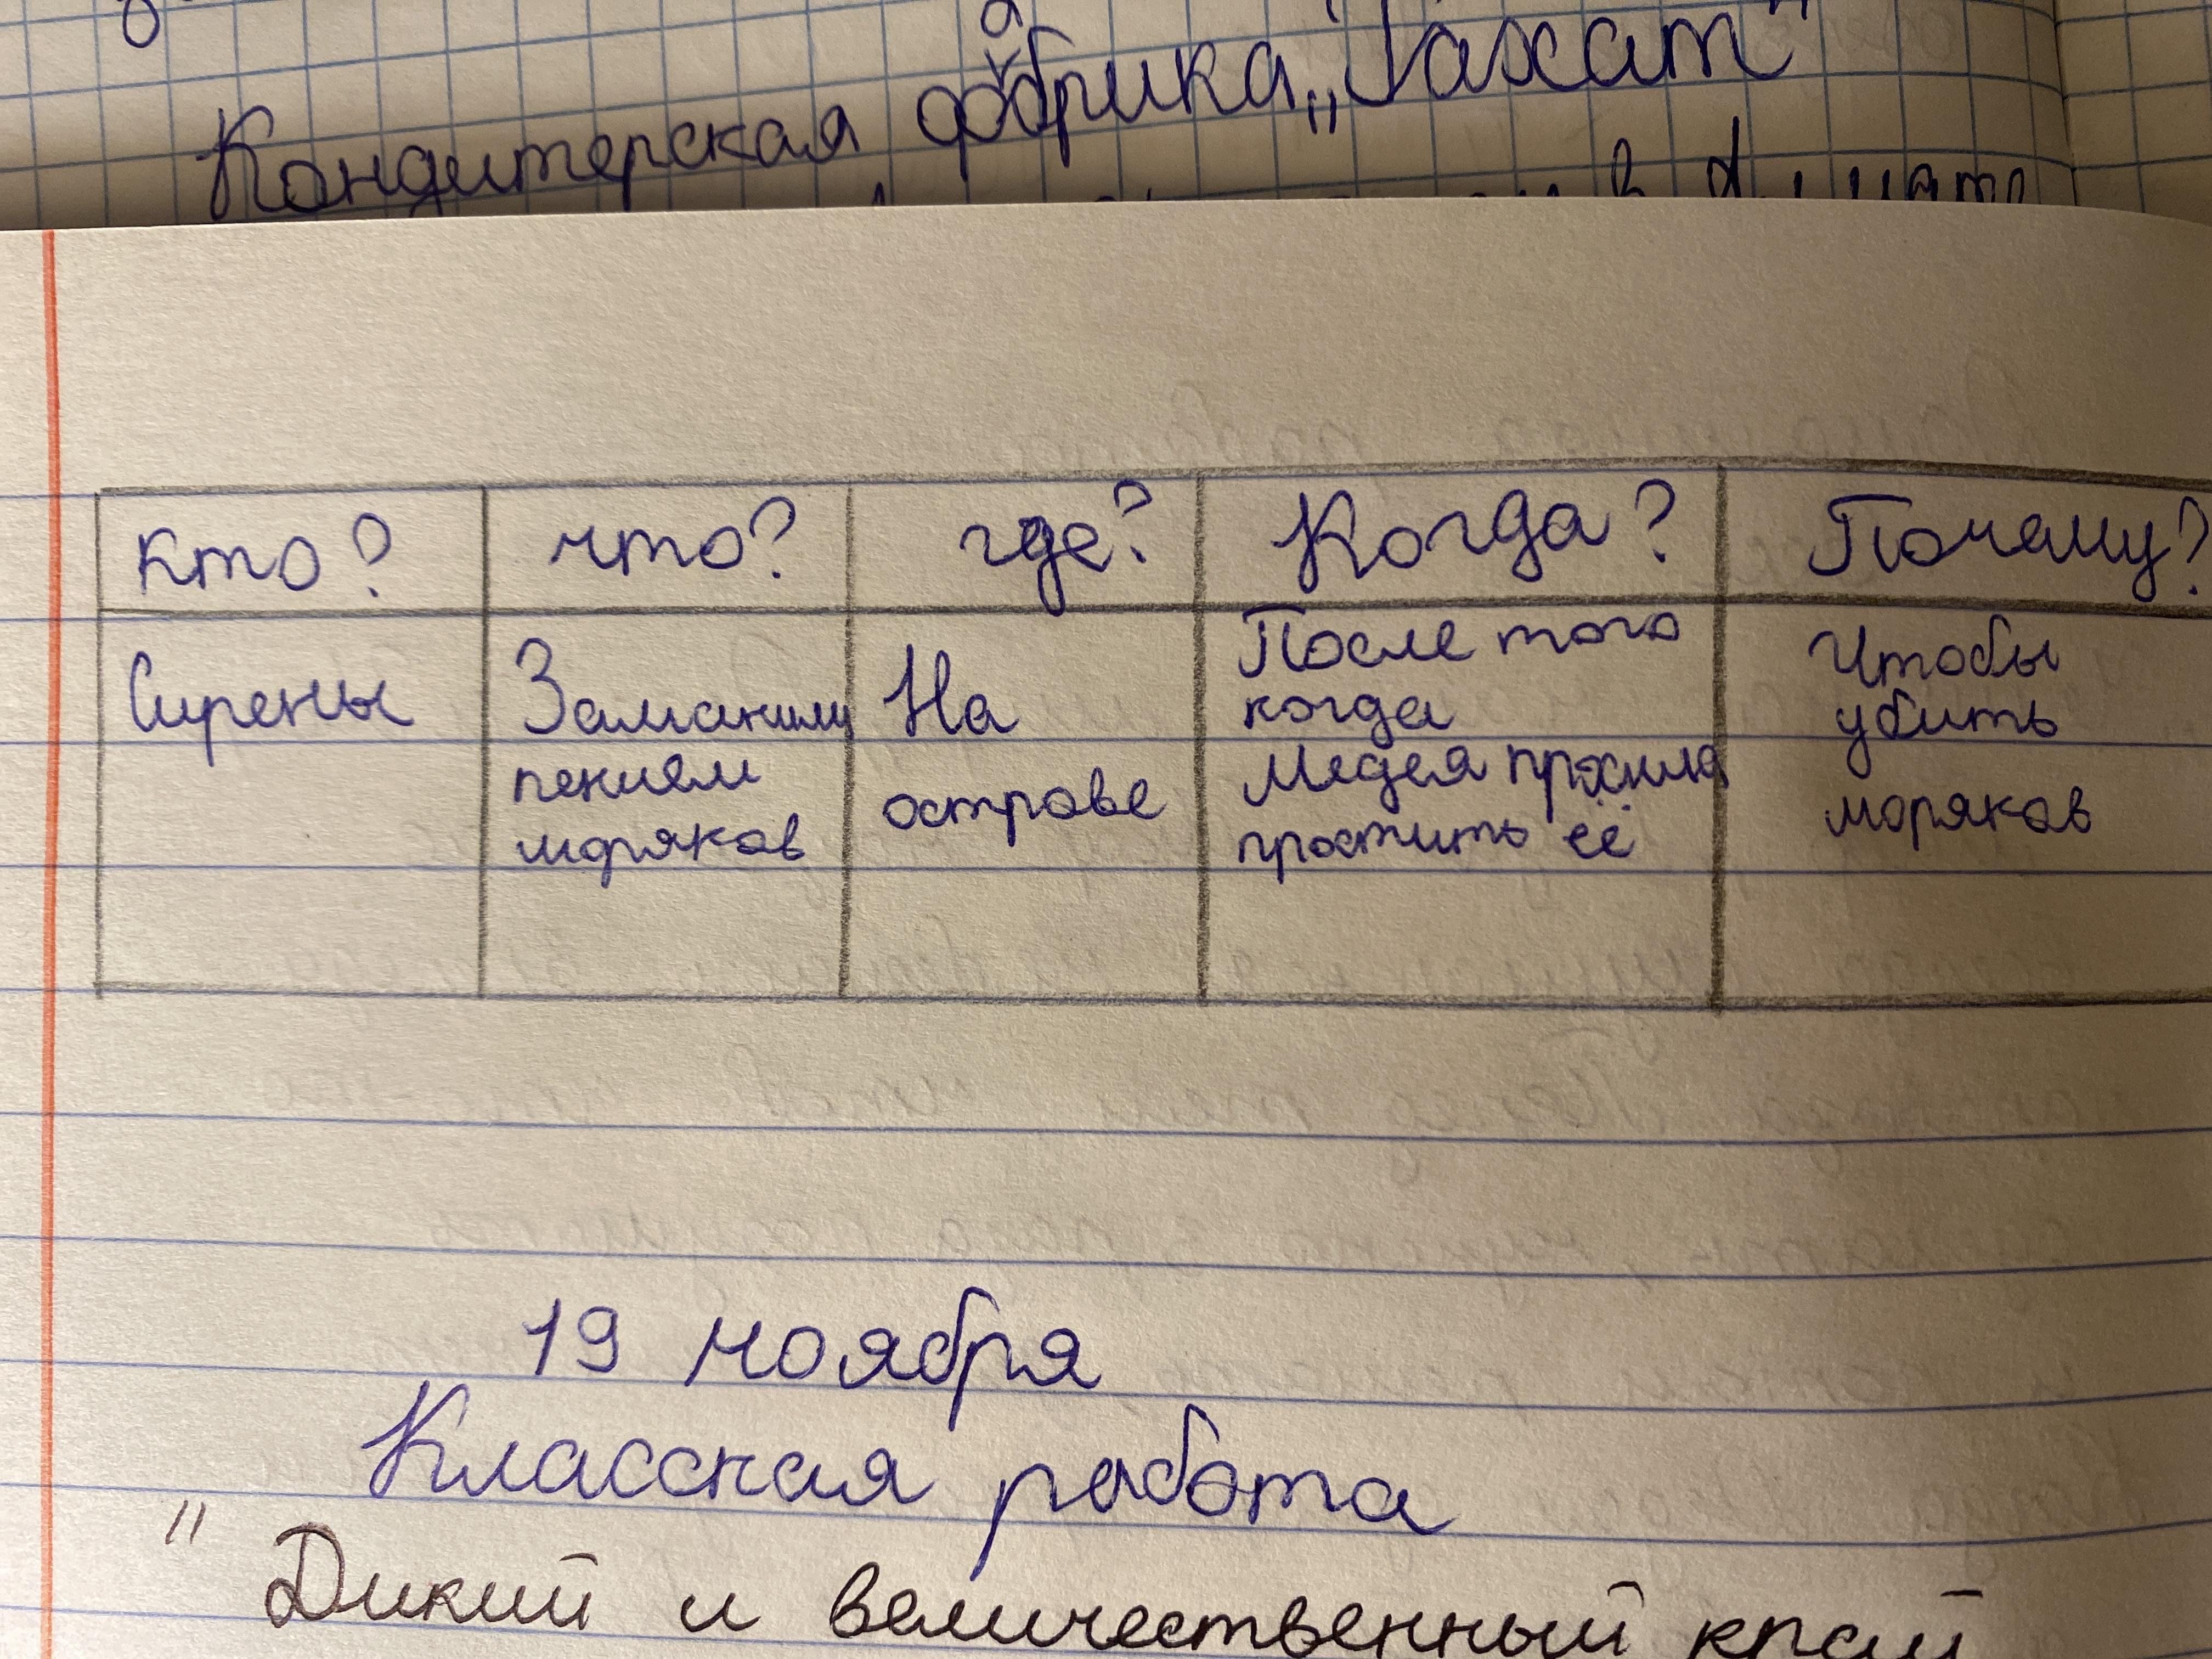 Кондитерская фабрика „Рахат"
кто? что? где? Когда? Почему?
Сирены
Заманили
пением
моряков
На
острове
После того
когда
Медея просила
простить её
Чтобы
убить
моряков
19 ноября
Классная работа
" Дикий и величественный край